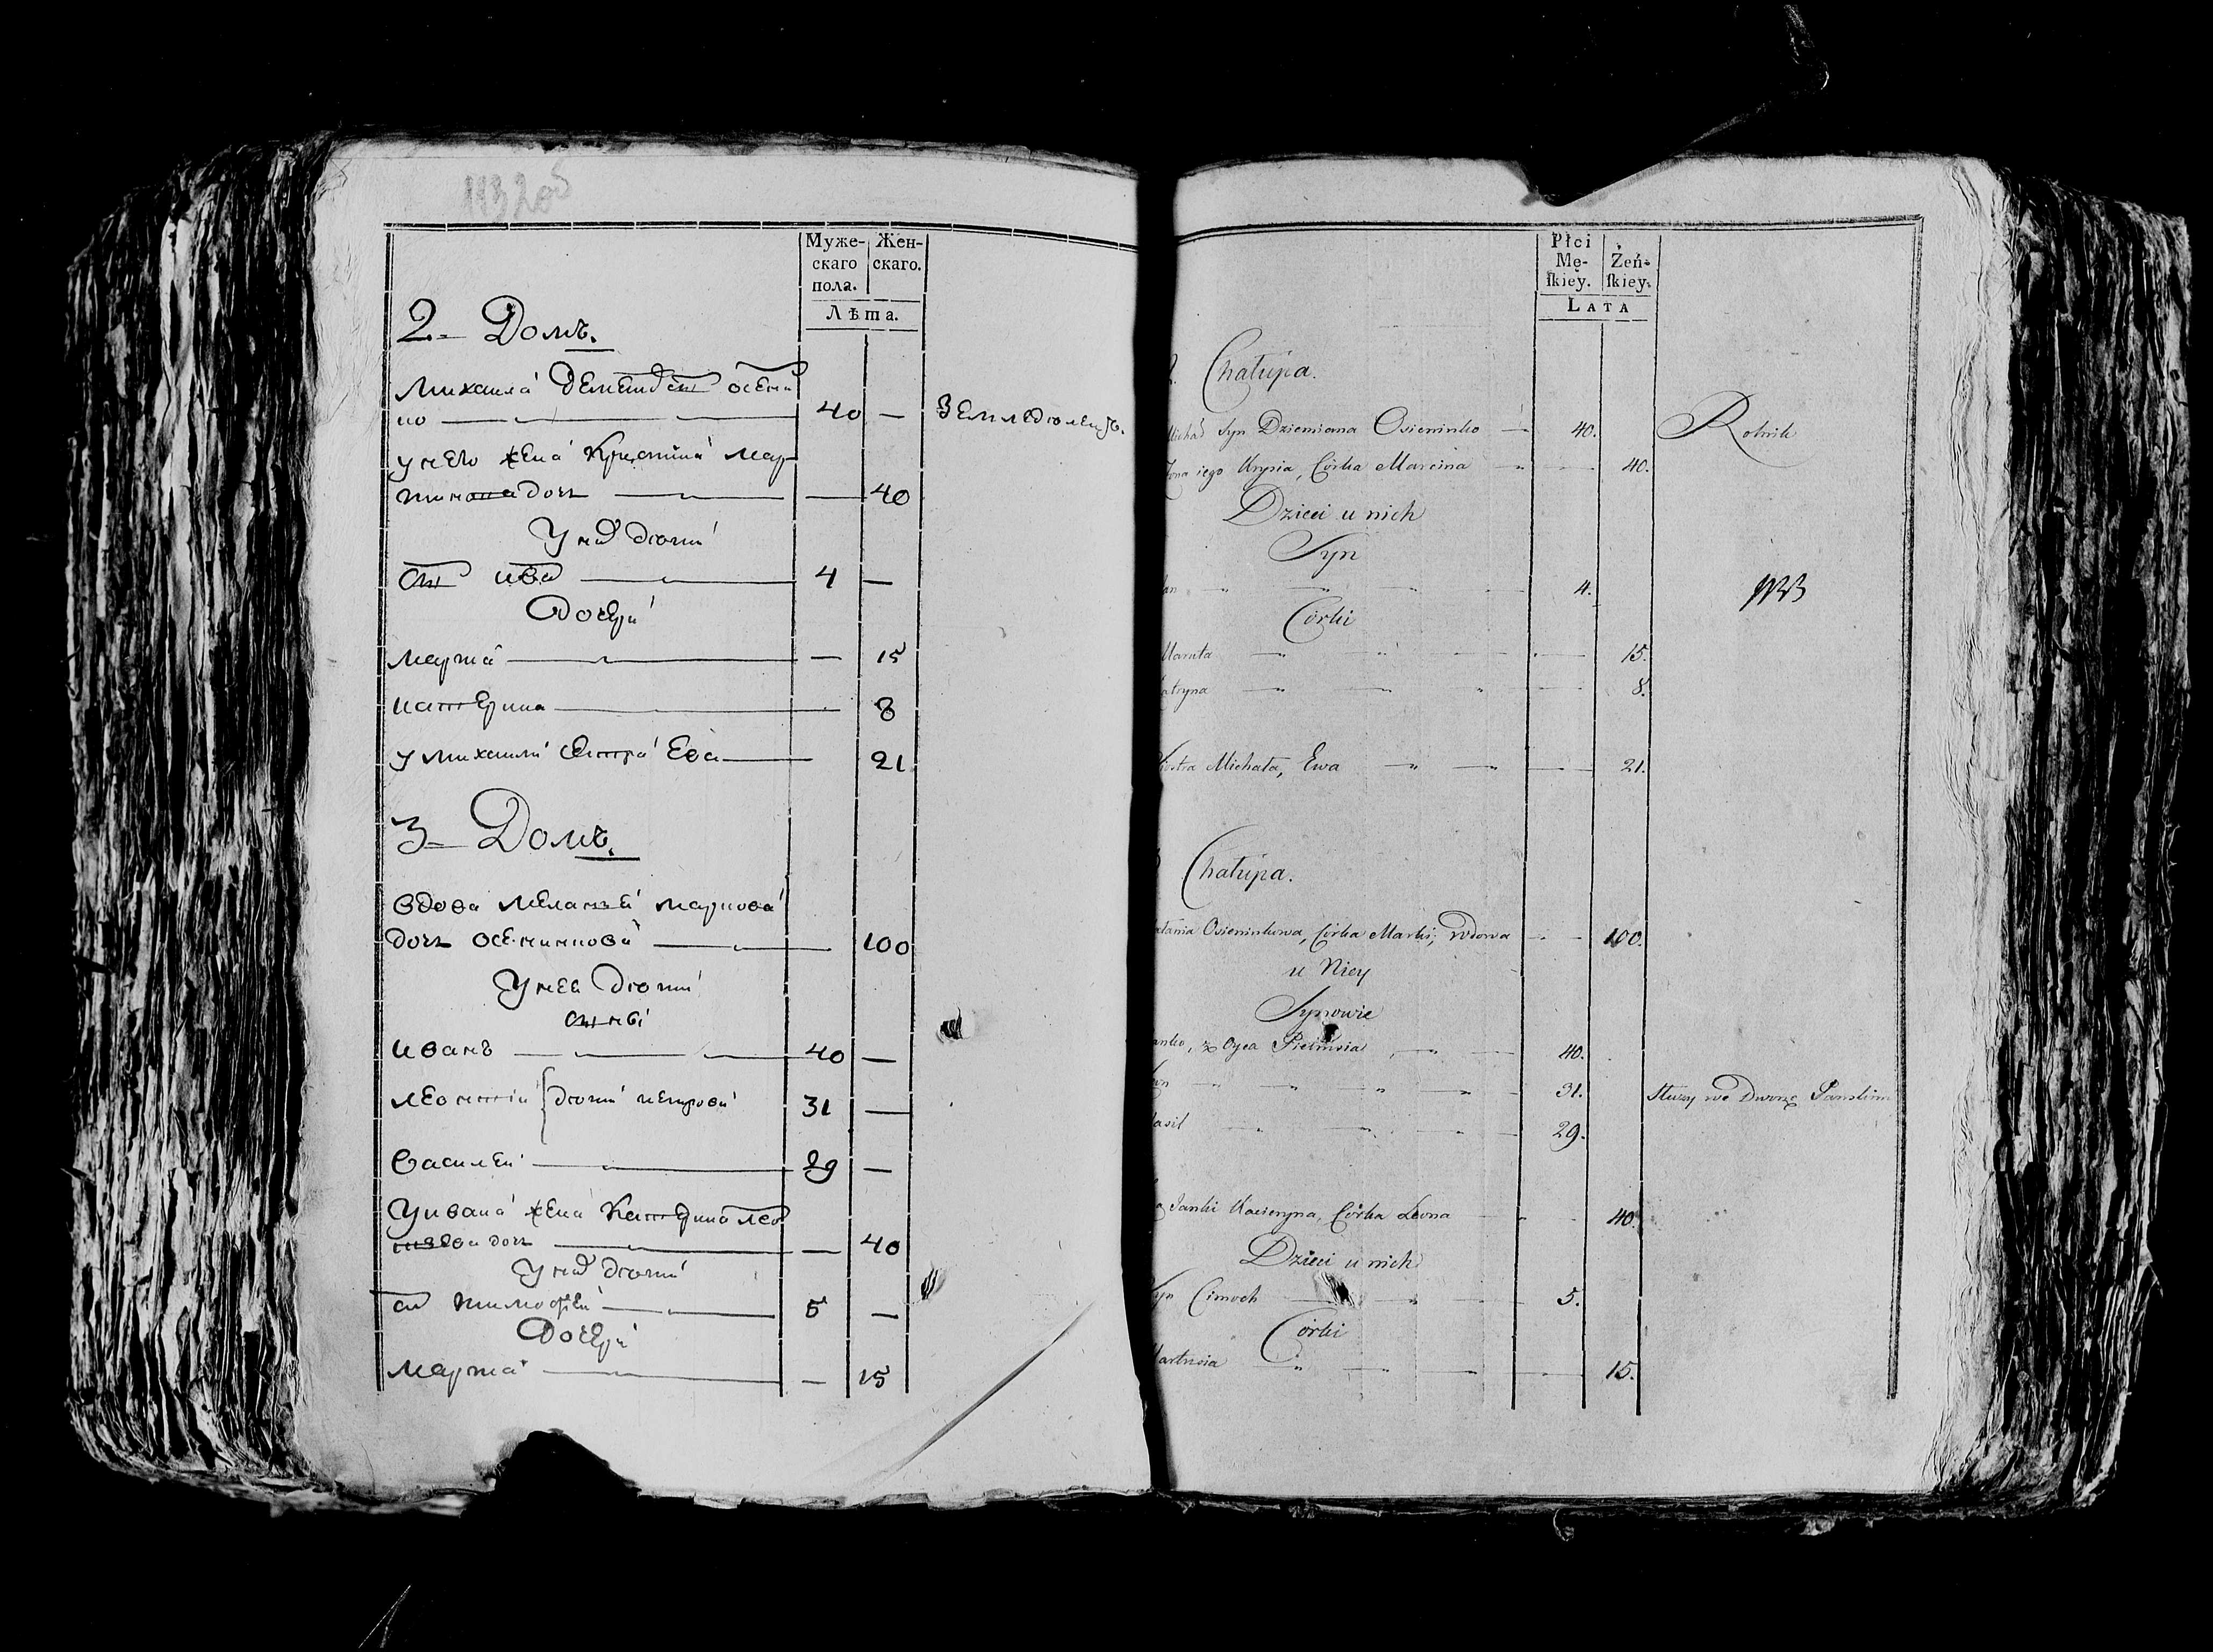 113 205
Муже-
скаго
пола.
Жен-
скаго.
Лѣта.
2 = Домъ.
Михаила Дементьевъ сынъ осени
но 40 — Земледѣлецъ.
у него жена Кристина мар
тинова дочь — 40
У нихъ дѣти
сынъ иванъ 4 —
Дочери
марта — 15
катерина 8
у михаила сестра Ева 21
3 = Домъ.
вдова меланья маркова
дочь осенинкова 100
У нее дѣти
сыны
иванъ 40 —
леонтій { дѣти петровы 31 —
василеи 29 —
У ивана жена Катерина
дочь — 40
У нихъ дѣти
сынъ тимофеи 5 —
Дочери
марта — 15
Płci
Mę-
skiey.
Żeń-
skiey.
LATA
2. Chałupa.
Michał Syn Dziemiana Osieninko 40. Rolnik
Żona iego Krysia, Córka Marcina 40.
Dzieci u nich
Syn
an 4.
Córki
Maruta 15.
atryna 8.
iostra Michała, Ewa 21.
3 Chałupa.
ałania Osieninkowa, Córka Marki, wdowa 100.
u Niey
Synowie
anko, z Oyca 40.
31. Służy we Dworze Pańskim
asil 29.
Janki Kacieryna, Córka Leona 40.
Dzieci u nich
Syn Cimoch 5.
Córki
artusia 15.